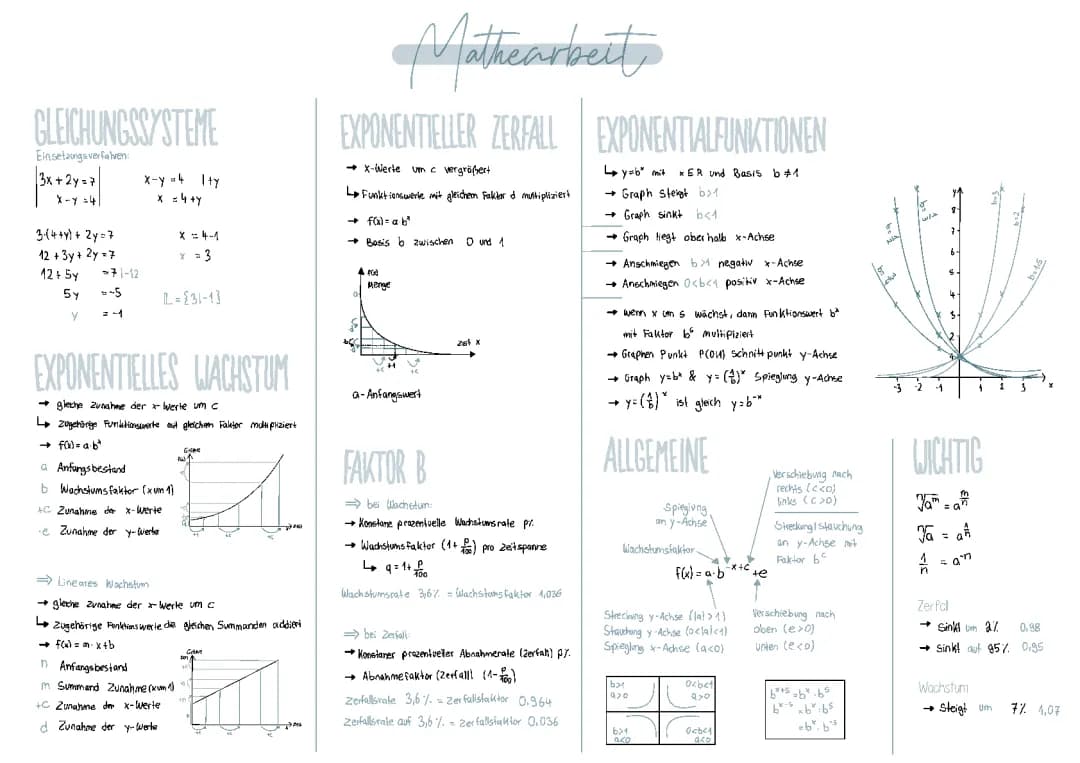 Mathearbeit
GLEICHUNGSSYSTEME
Einsetzungsverfahren:
3x + 2y = 7
x - y = 4
x - y = 4 | + y
x = 4 + y
3·(4+y) + 2y = 7
12 + 3y + 2y = 7
12 + 5y = 7 | -12
5y = -5
y = -1
x = 4-1
x = 3
L = {3|-1}
EXPONENTIELLES WACHSTUM
→ gleiche Zunahme der x-Werte um c
↳ zugehörige Funktionswerte mit gleichem Faktor multipliziert
→ f(x) = a·b^x
a Anfangsbestand
b Wachstumsfaktor (x um 1)
+c Zunahme der x-Werte
·e Zunahme der y-Werte
⇒ Lineares Wachstum
→ gleiche Zunahme der x-Werte um c
↳ Zugehörige Funktionswerte die gleichen Summanden addiert
→ f(x) = m·x+b
n Anfangsbestand
m Summand Zunahme (x um 1)
+c Zunahme der x-Werte
d Zunahme der y-Werte
EXPONENTIELLER ZERFALL
→ x-Werte um c vergrößert
↳ Funktionswerte mit gleichem Faktor d multipliziert
→ f(x) = a·b^x
→ Basis b zwischen 0 und 1
f(x)
Menge
Zeit x
a - Anfangswert
FAKTOR B
⇒ bei Wachstum:
→ Konstane prozentuelle Wachstumsrate p%
→ Wachstumsfaktor (1+ p/100) pro Zeitspanne
↳ q = 1+ p/100
Wachstumsrate 3,6% = Wachstumsfaktor 1,036
⇒ bei Zerfall:
→ Konstaner prozentueller Abnahmerate (Zerfall) p%
→ Abnahmefaktor (Zerfall) (1- p/100)
Zerfallsrate 3,6% = Zerfallsfaktor 0,964
Zerfallsrate auf 3,6% = Zerfallsfaktor 0,036
EXPONENTIALFUNKTIONEN
↳ y=b^x mit x ER und Basis b ≠ 1
→ Graph steigt b>1
→ Graph sinkt b<1
→ Graph liegt oberhalb x-Achse
→ Anschmiegen b>1 negativ x-Achse
→ Anschmiegen 0<b<1 positiv x-Achse
→ wenn x um s wächst, dann Funktionswert b^x
mit Faktor b^s multipliziert
→ Graphen Punkt P(0|1) Schnittpunkt y-Achse
→ Graph y=b^x & y=(1/b)^x Spieglung y-Achse
→ y=(1/b)^x ist gleich y=b^-x
b=3
b=2
b=1,5
ALLGEMEINE
Verschiebung nach
rechts (c<0)
links (c>0)
Spieglung
an y-Achse
Streckung/Stauchung
an y-Achse mit
Faktor b^c
Wachstumsfaktor
f(x) = a·b^-x+c +e
Streckung y-Achse (|a|>1)
Stauchung y-Achse (0<|a|<1)
Spieglng x-Achse (a<0)
Verschiebung nach
oben (e>0)
unten (e<0)
b>1
a>0
0<b<1
a>0
b>1
a<0
0<b<1
a<0
b^x+s = b^x · b^s
b^x-s = b^x : b^s
= b^x · b^-s
WICHTIG
ⁿ√a^m = a^m/n
ⁿ√a = a^1/n
1/n = a^-n
Zerfall
→ Sinkt um 2% 0,98
→ sinkt auf 95% 0,95
Wachstum
→ Steigt um 7% 1,07